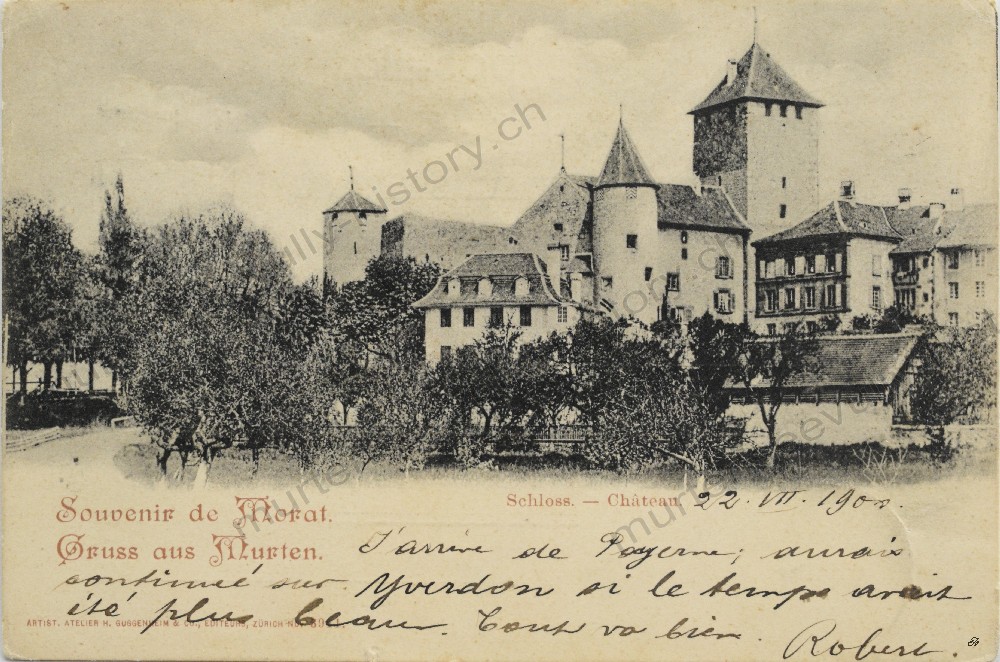 Schloss. — Château.
22. VII. 1900.
Souvenir de Morat.
Gruss aus Murten.
J'arrive de Payerne; aurais
continueé sur Yverdon si le temps avait
été plus beau. Tout va bien.
Robert.
ARTIST. ATELIER H. GUGGENHEIM & Co., EDITEURS, ZÜRICH No.
murtenevully.history.ch